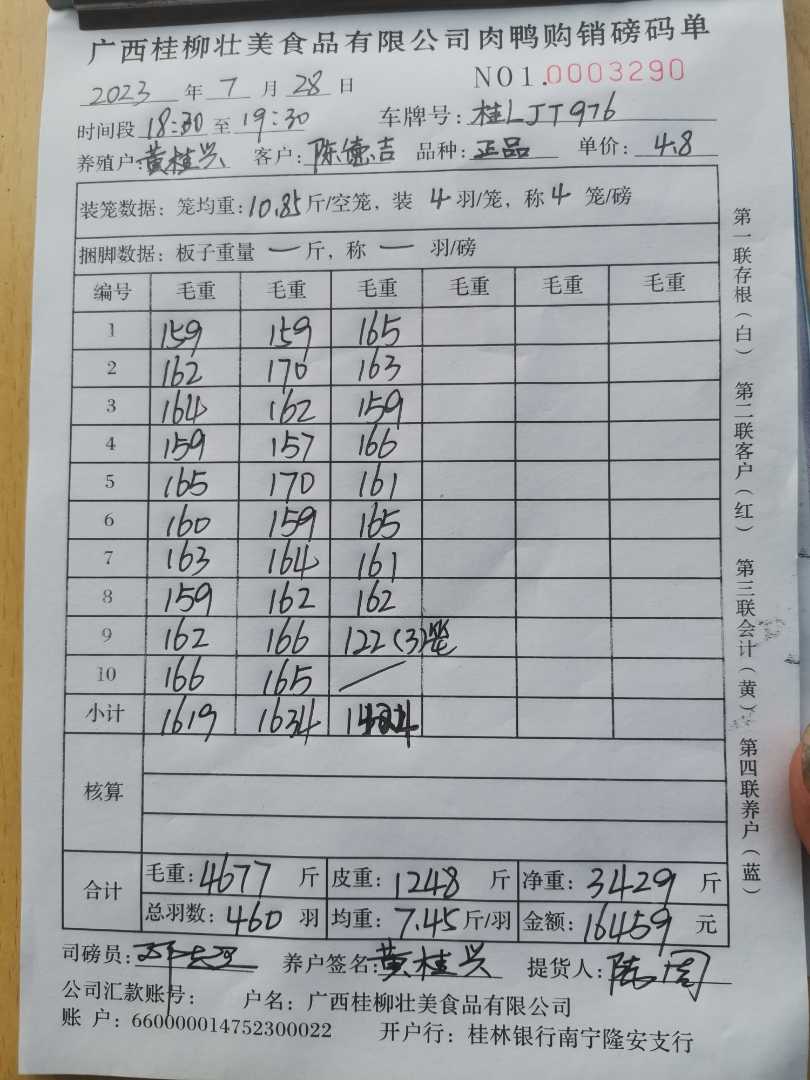 广西桂柳壮美食品有限公司肉鸭购销磅码单
2023 年 7 月 28 日 NO1.0003290
时间段 18:30 至 19:30 车牌号: 桂LJT976
养殖户: 黄桂兴 客户: 陈德吉 品种: 正品 单价: 4.8
装笼数据: 笼均重: 10.85 斤/空笼, 装 4 羽/笼, 称 4 笼/磅
捆脚数据: 板子重量 一 斤, 称 一 羽/磅
编号 毛重 毛重 毛重 毛重 毛重 毛重
1 159 159 165
2 162 170 163
3 164 162 159
4 159 157 166
5 165 170 161
6 160 159 165
7 163 164 161
8 159 162 162
9 162 166 122 (3)笼
10 166 165 /
小计 1619 1634
核算
合计
毛重: 4677 斤 皮重: 1248 斤 净重: 3429 斤
总羽数: 460 羽 均重: 7.45 斤/羽 金额: 16459 元
司磅员: 养户签名: 黄桂兴 提货人:
公司汇款账号: 户名: 广西桂柳壮美食品有限公司
账 户: 660000014752300022 开户行: 桂林银行南宁隆安支行
第一联存根(白) 第二联客户(红) 第三联会计(黄) 第四联养户(蓝)